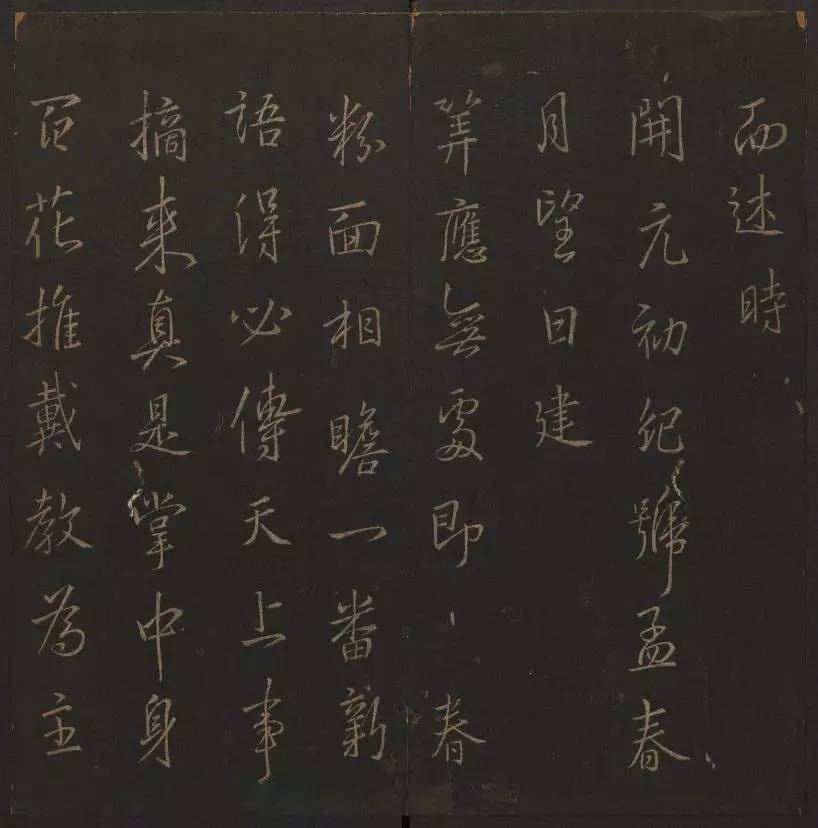 而述時
開元初紀號孟春
月望日建
筭應無處即、春
粉面相瞻一番新
語得必傳天上事
摘来真是掌中身
百花推戴教為主